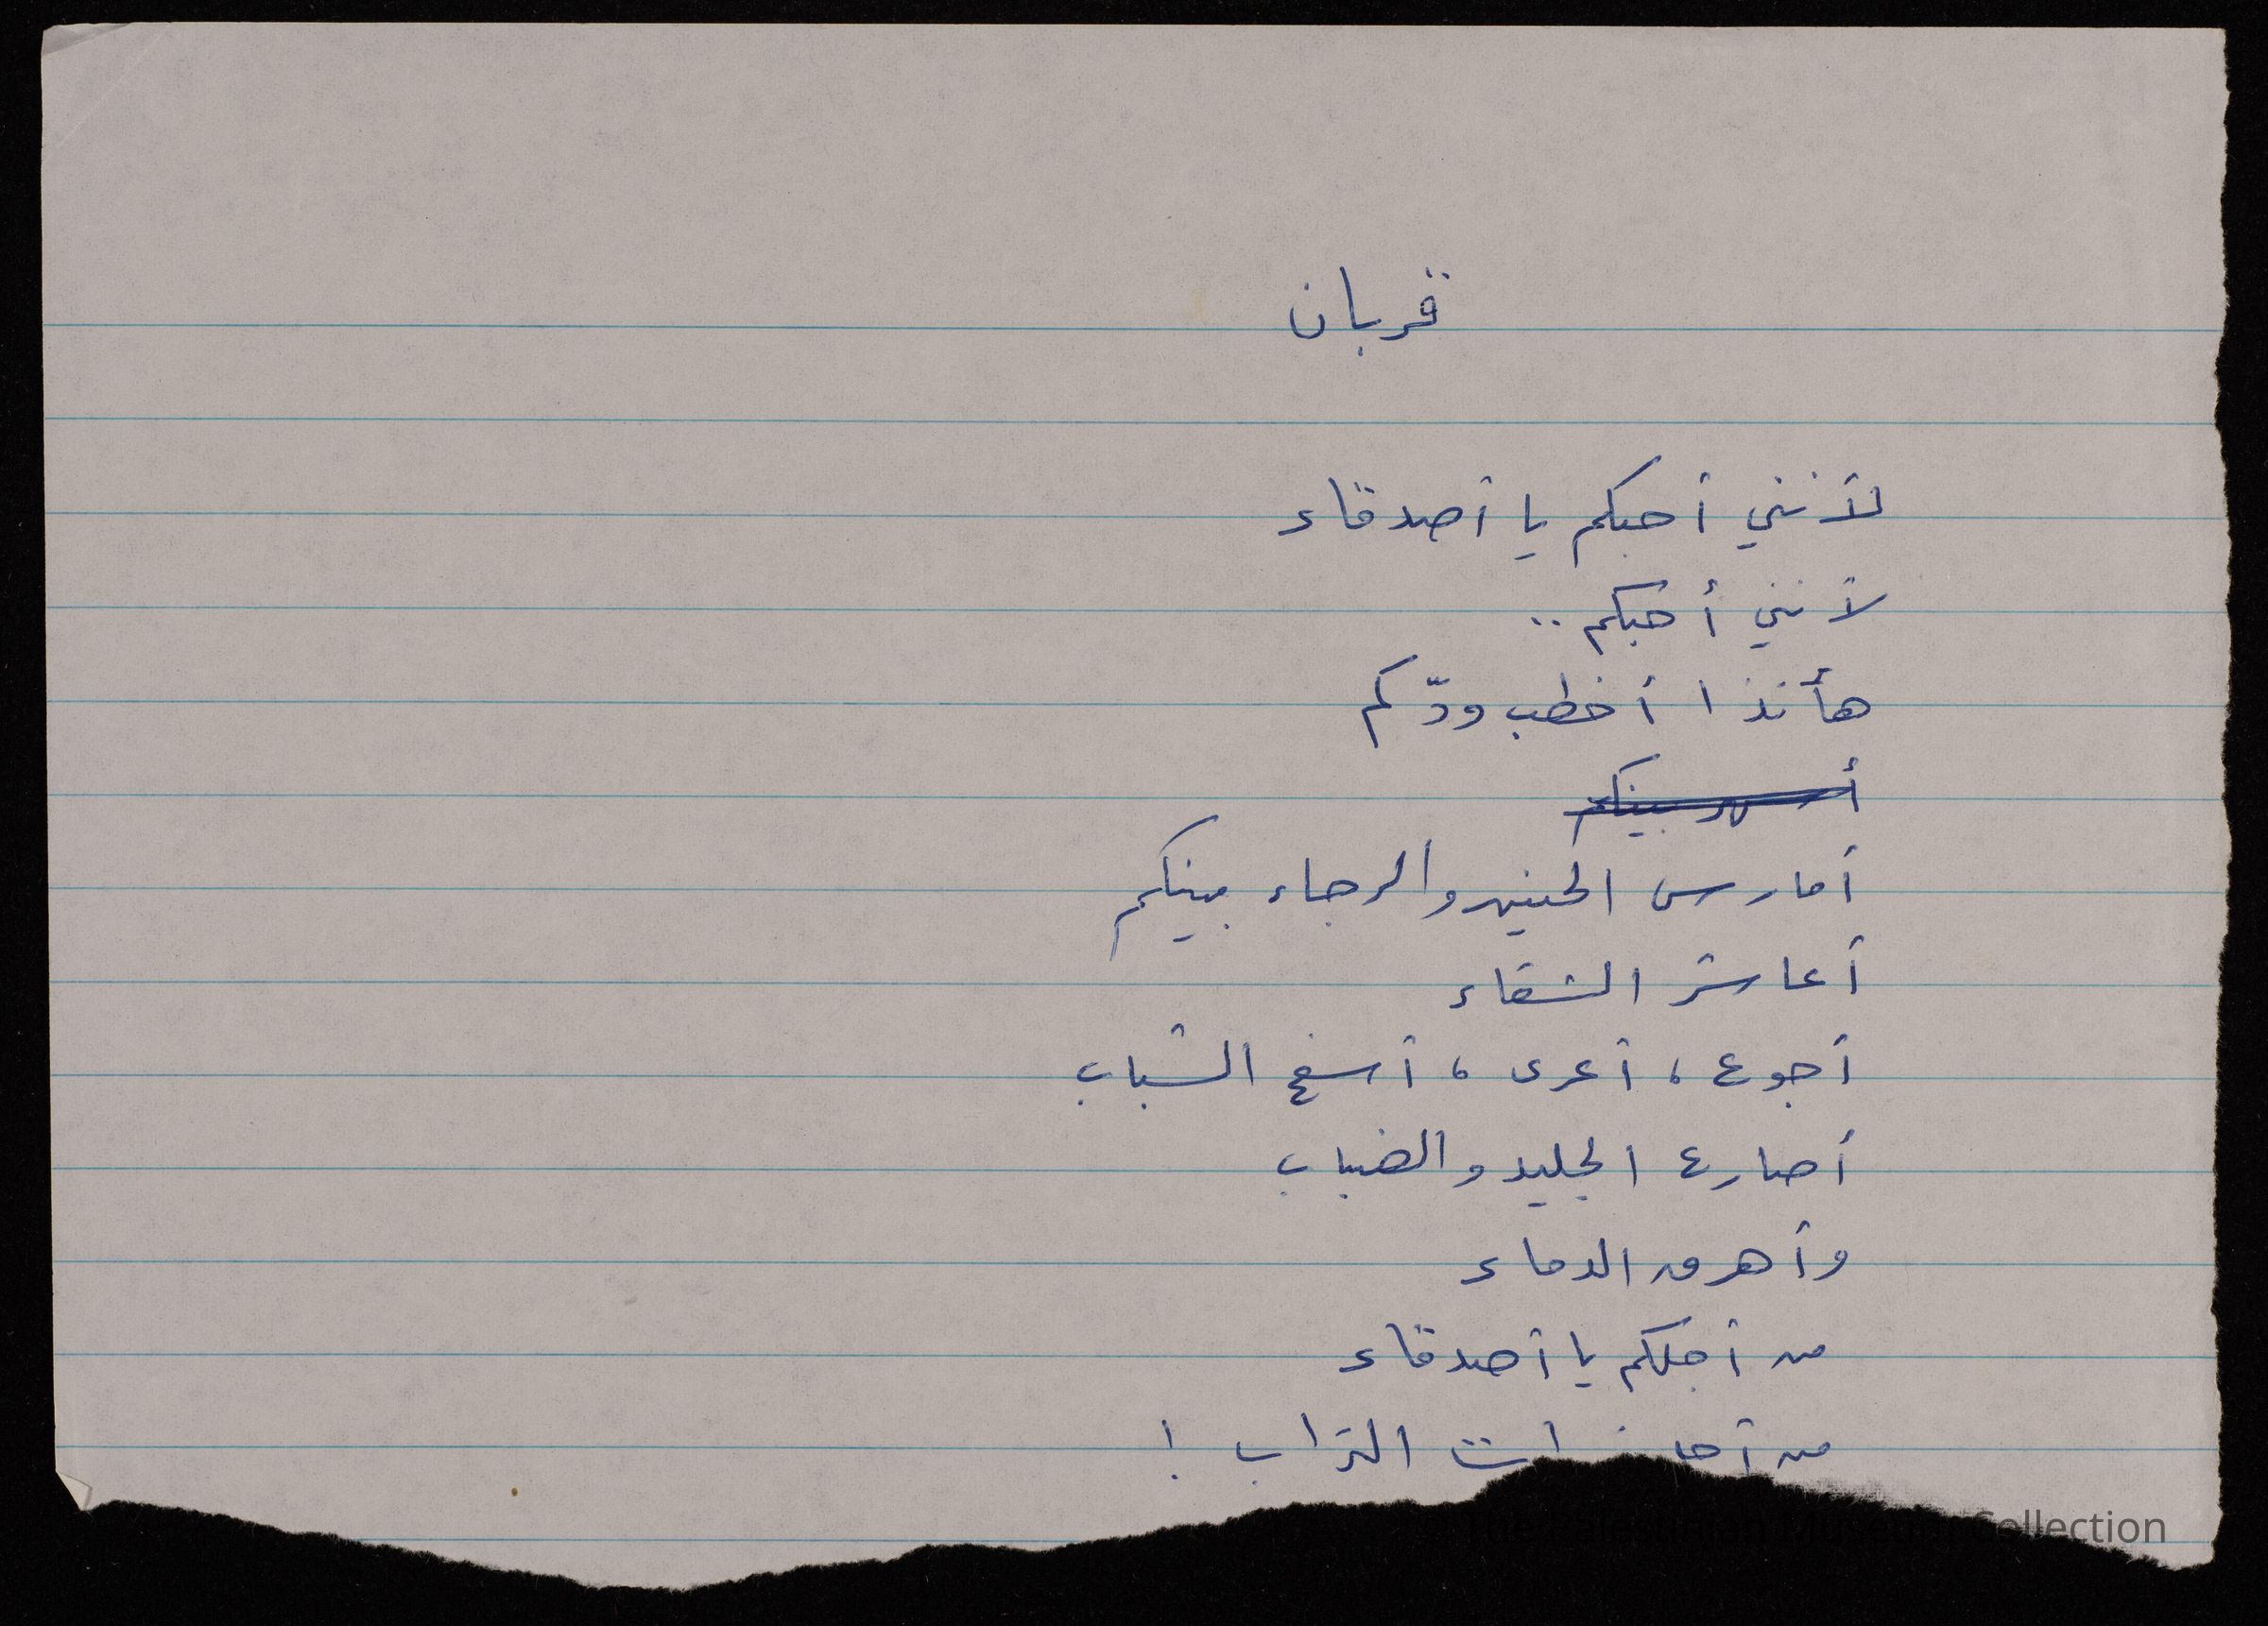 قربان
لأنني أحبكم يا أصدقاء
لأنني أحبكم ..
هأنذا أخطب ودّكم
أسهر بينكم
أمارس الحنين والرجاء بينكم
أعاشر الشقاء
أجوع ، أعرى ، أسفح الشباب
أصارع الجليد والضباب
وأهرق الدماء
من أجلكم يا أصدقاء
من التراب !
The Palestinian Museum Collection